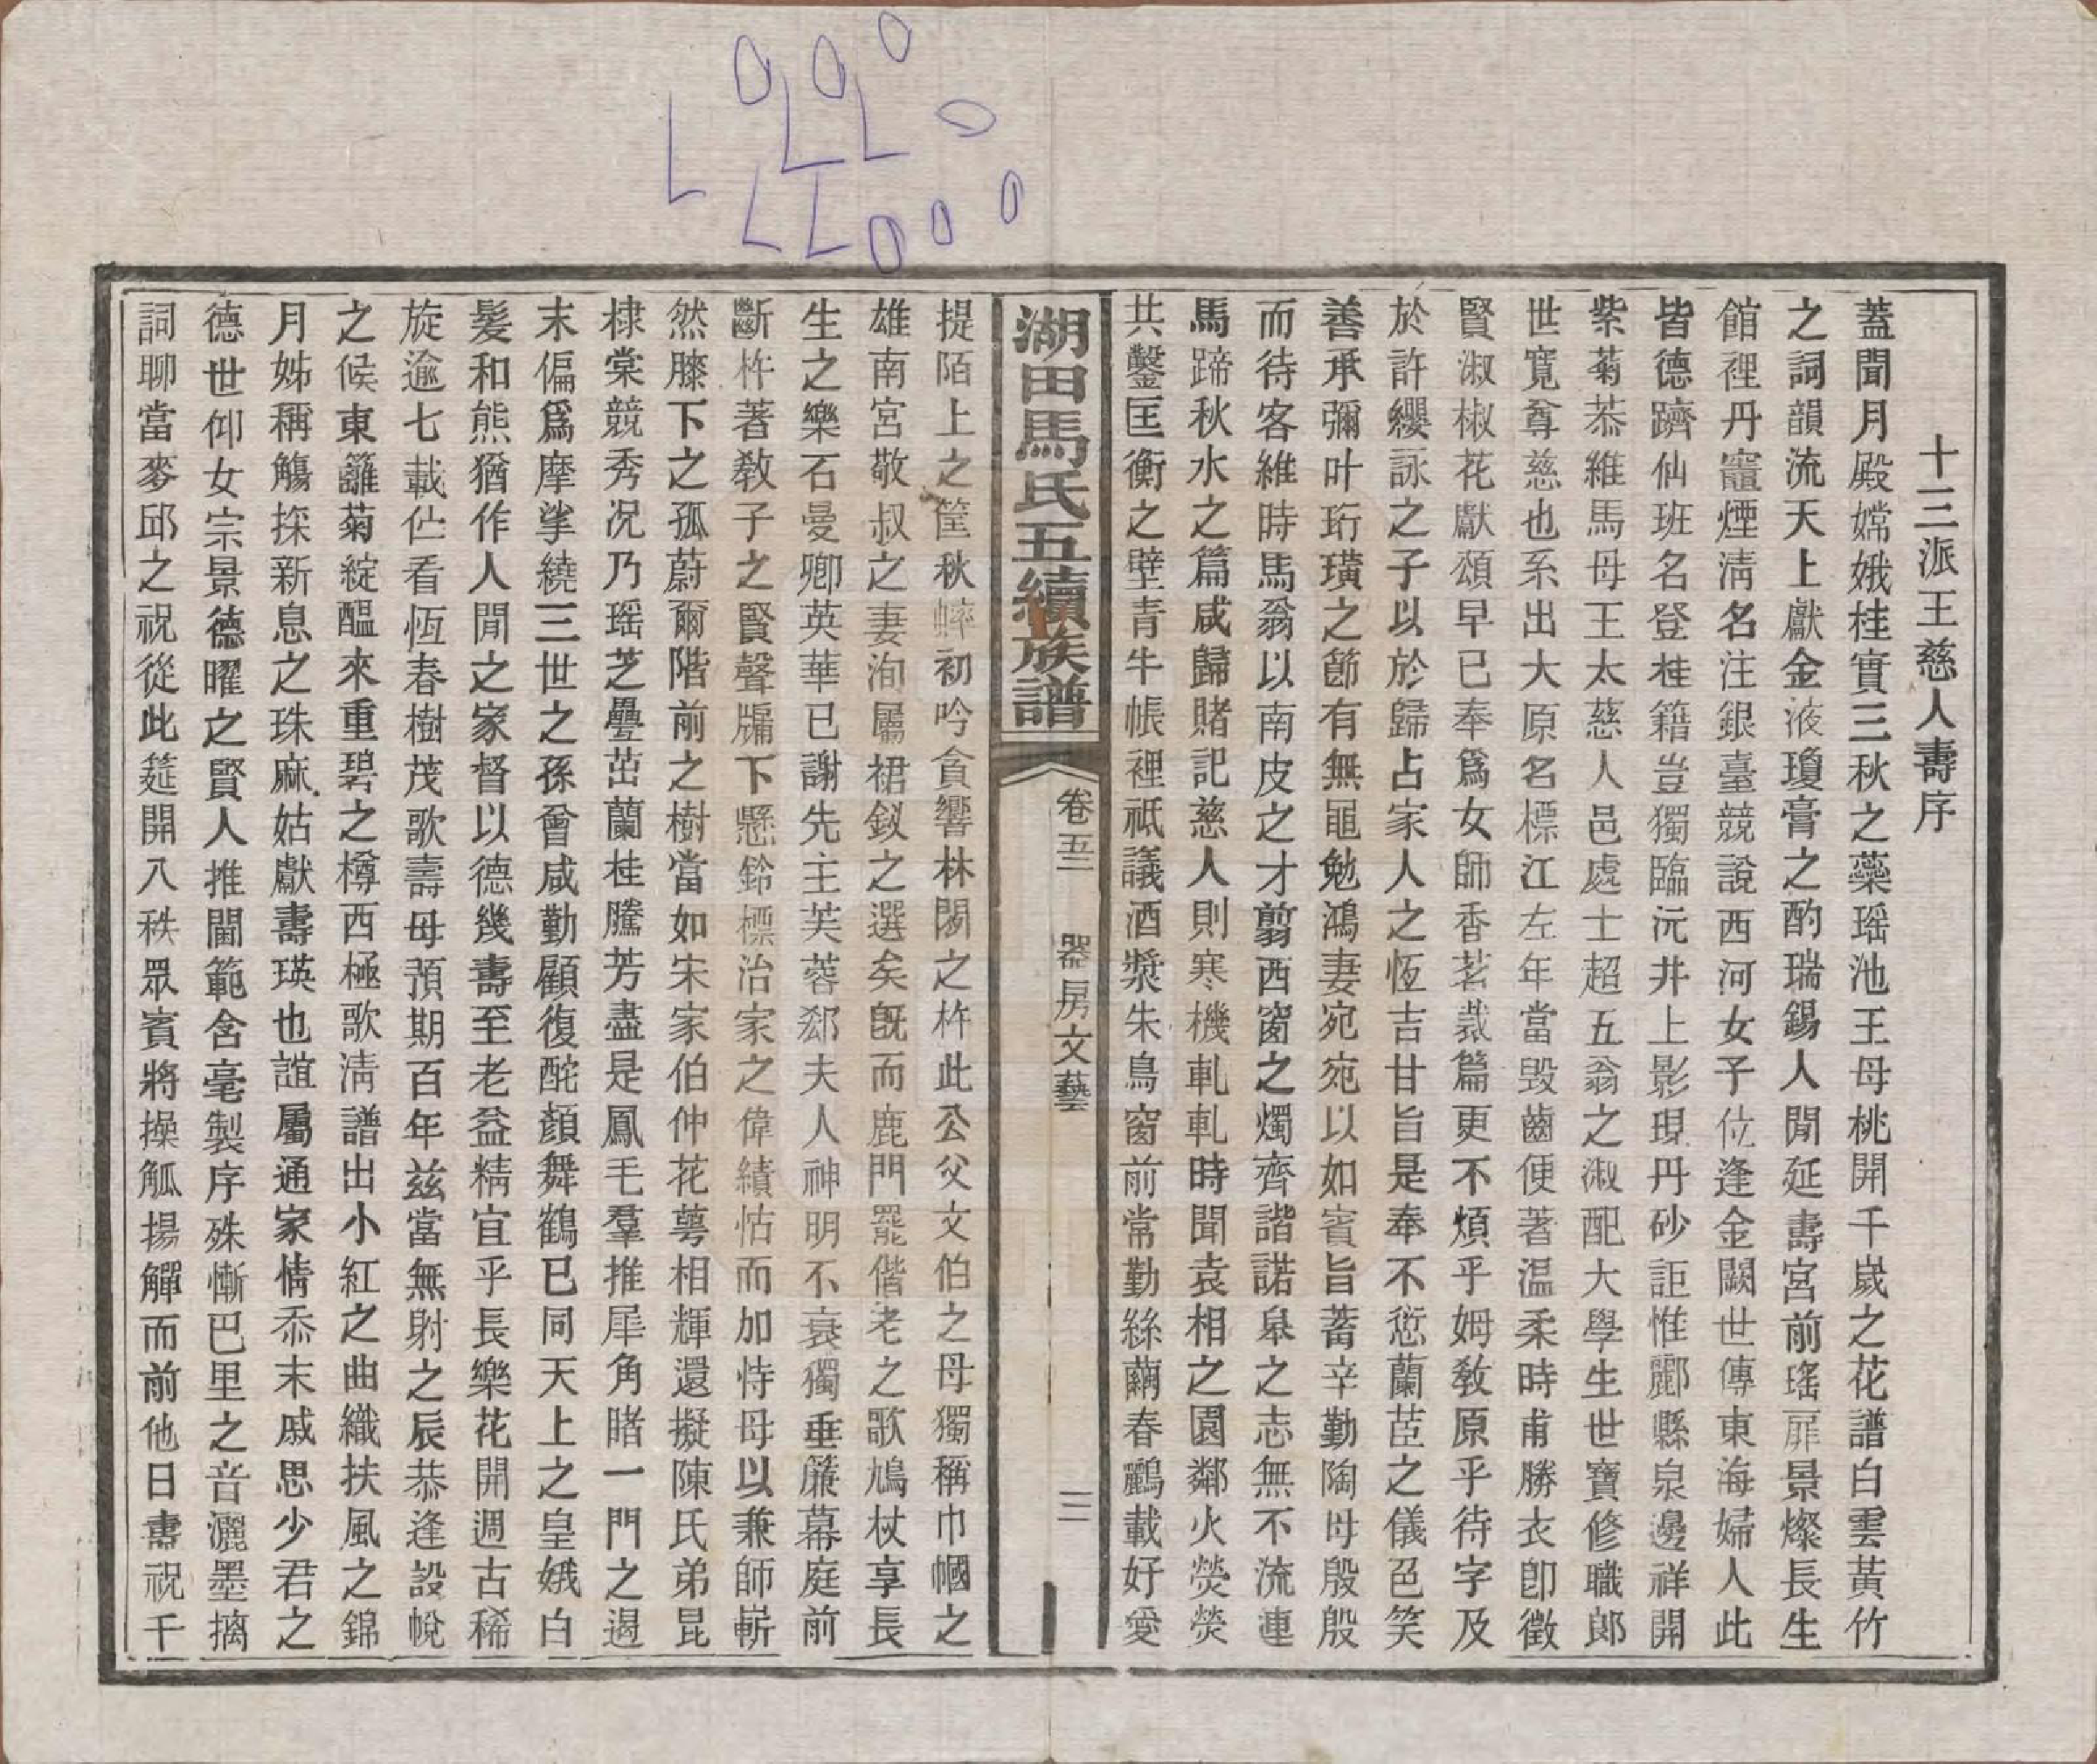 十三派王慈人壽序
蓋聞月殿嫦娥桂實三秋之藥瑤池王母桃開千歲之花譜白雲黃竹
之詞韻流天上獻金液瓊膏之酌瑞錫人閒延壽宮前瑤扉景燦長生
館裡丹竈煙淸名注銀臺競說西河女子位逢金闕世傳東海婦人此
皆德躋仙班名登桂籍豈獨臨沅井上影現丹砂詎惟酈縣泉邊祥開
紫菊恭維馬母王太慈人邑處士超五翁之淑配大學生世寶修職郎
世寬尊慈也系出大原名標江左年當毀齒便著温柔時甫勝衣卽徵
賢淑椒花獻頌早已奉爲女師香茗裁篇更不煩乎姆敎原乎待字及
於許纓詠之子以於歸占家人之恆吉甘旨是奉不愆蘭茝之儀色笑
善承彌叶珩璜之節有無黽勉鴻妻宛宛以如賓旨蓄辛勤陶母殷殷
而待客維時馬翁以南皮之才翦西窗之燭齊諧諾臯之志無不流連
馬蹄秋水之篇咸歸賭記慈人則寒機軋軋時聞袁相之園鄰火熒熒
共鑿匡衡之壁青牛帳裡祇議酒漿朱鳥窗前常勤絲繭春鸝載好愛
湖田馬氏五續族譜
卷五二
器房文藝
三
提陌上之筐秋蟀初吟貪響林閒之杵此公父文伯之母獨稱巾幗之
雄南宮敬叔之妻洵屬裙釵之選矣旣而鹿門罷偕老之歌鳩杖享長
生之樂石曼卿英華已謝先主芙蓉郄夫人神明不衰獨垂簾幕庭前
斷杵著敎子之賢聲牖下懸鈴標治家之偉績怙而加恃母以兼師嶄
然膝下之孤蔚爾階前之樹當如宋家伯仲花萼相輝還擬陳氏弟昆
棣棠競秀况乃瑶芝疊茁蘭桂騰芳盡是鳳毛羣推犀角睹一門之邁
末偏爲摩挲繞三世之孫曾咸勤顧復酡顏舞鶴已同天上之皇娥白
髮和熊猶作人閒之家督以德幾壽至老益精宜乎長樂花開週古稀
旋逾七載伫看恆春樹茂歌壽母預期百年兹當無射之辰恭逢設帨
之候東籬菊綻醖來重碧之樽西極歌淸譜出小紅之曲織扶風之錦
月姊稱觴探新息之珠麻姑獻壽瑛也誼屬通家情忝末戚思少君之
德世仰女宗景德曜之賢人推閫範含毫製序殊慚巴里之音灑墨摛
詞聊當麥邱之祝從此筵開八秩眾賓將操觚揚觶而前他日壽祝千